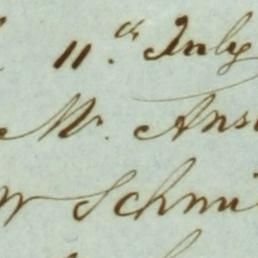 11.th July
Mr. Ans
Schmi